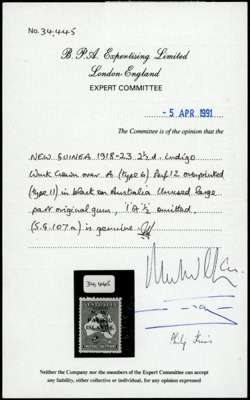 No. 34,445
B. P. A. Expertising Limited
London England
EXPERT COMMITTEE
- 5 APR 1991
The Committee is of the opinion that the
NEW GUINEA 1918-23 2½d. indigo
Wmk Crown over A (type 6) Perf 12 overprinted
(type 11) in black on Australia Unused large
part original gum, '1'A'½ omitted,
(S.G. 107a) is genuine
34,445
Neither the Company nor the members of the Expert Committee can accept
any liability, either collective or individual, for any opinion expressed